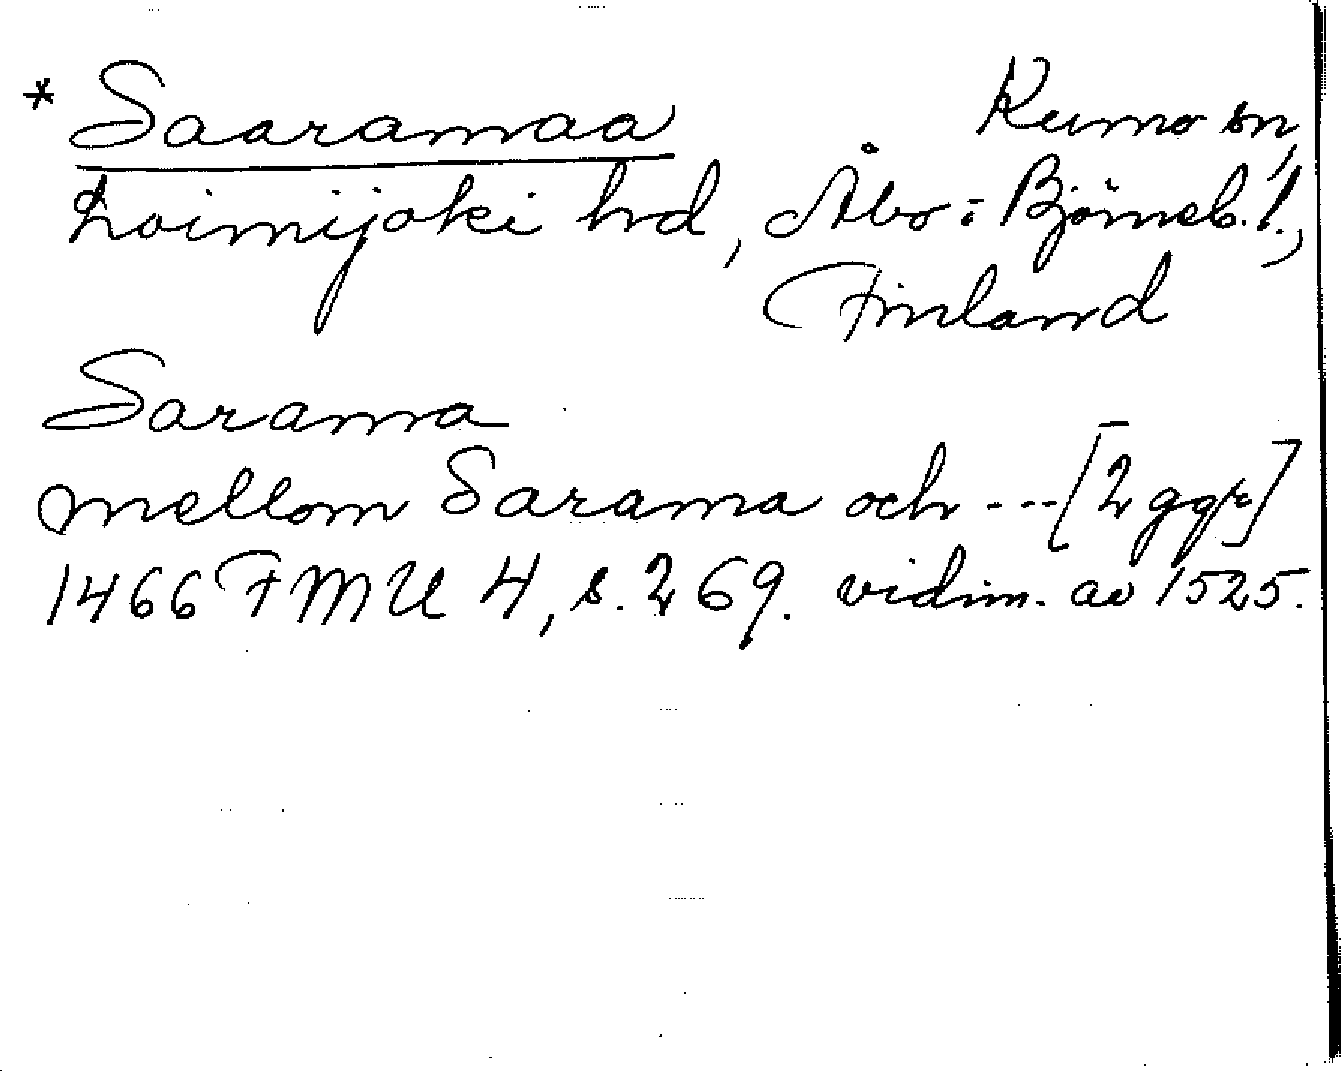 * Saaramaa Kumo sn,
Loimijoki hd, Åbo-Björneb. l.,
Finland
Sarama
mellom Sarama och --- [2 ggr]
1466 FMU 4, s. 269. vidim. av 1525.